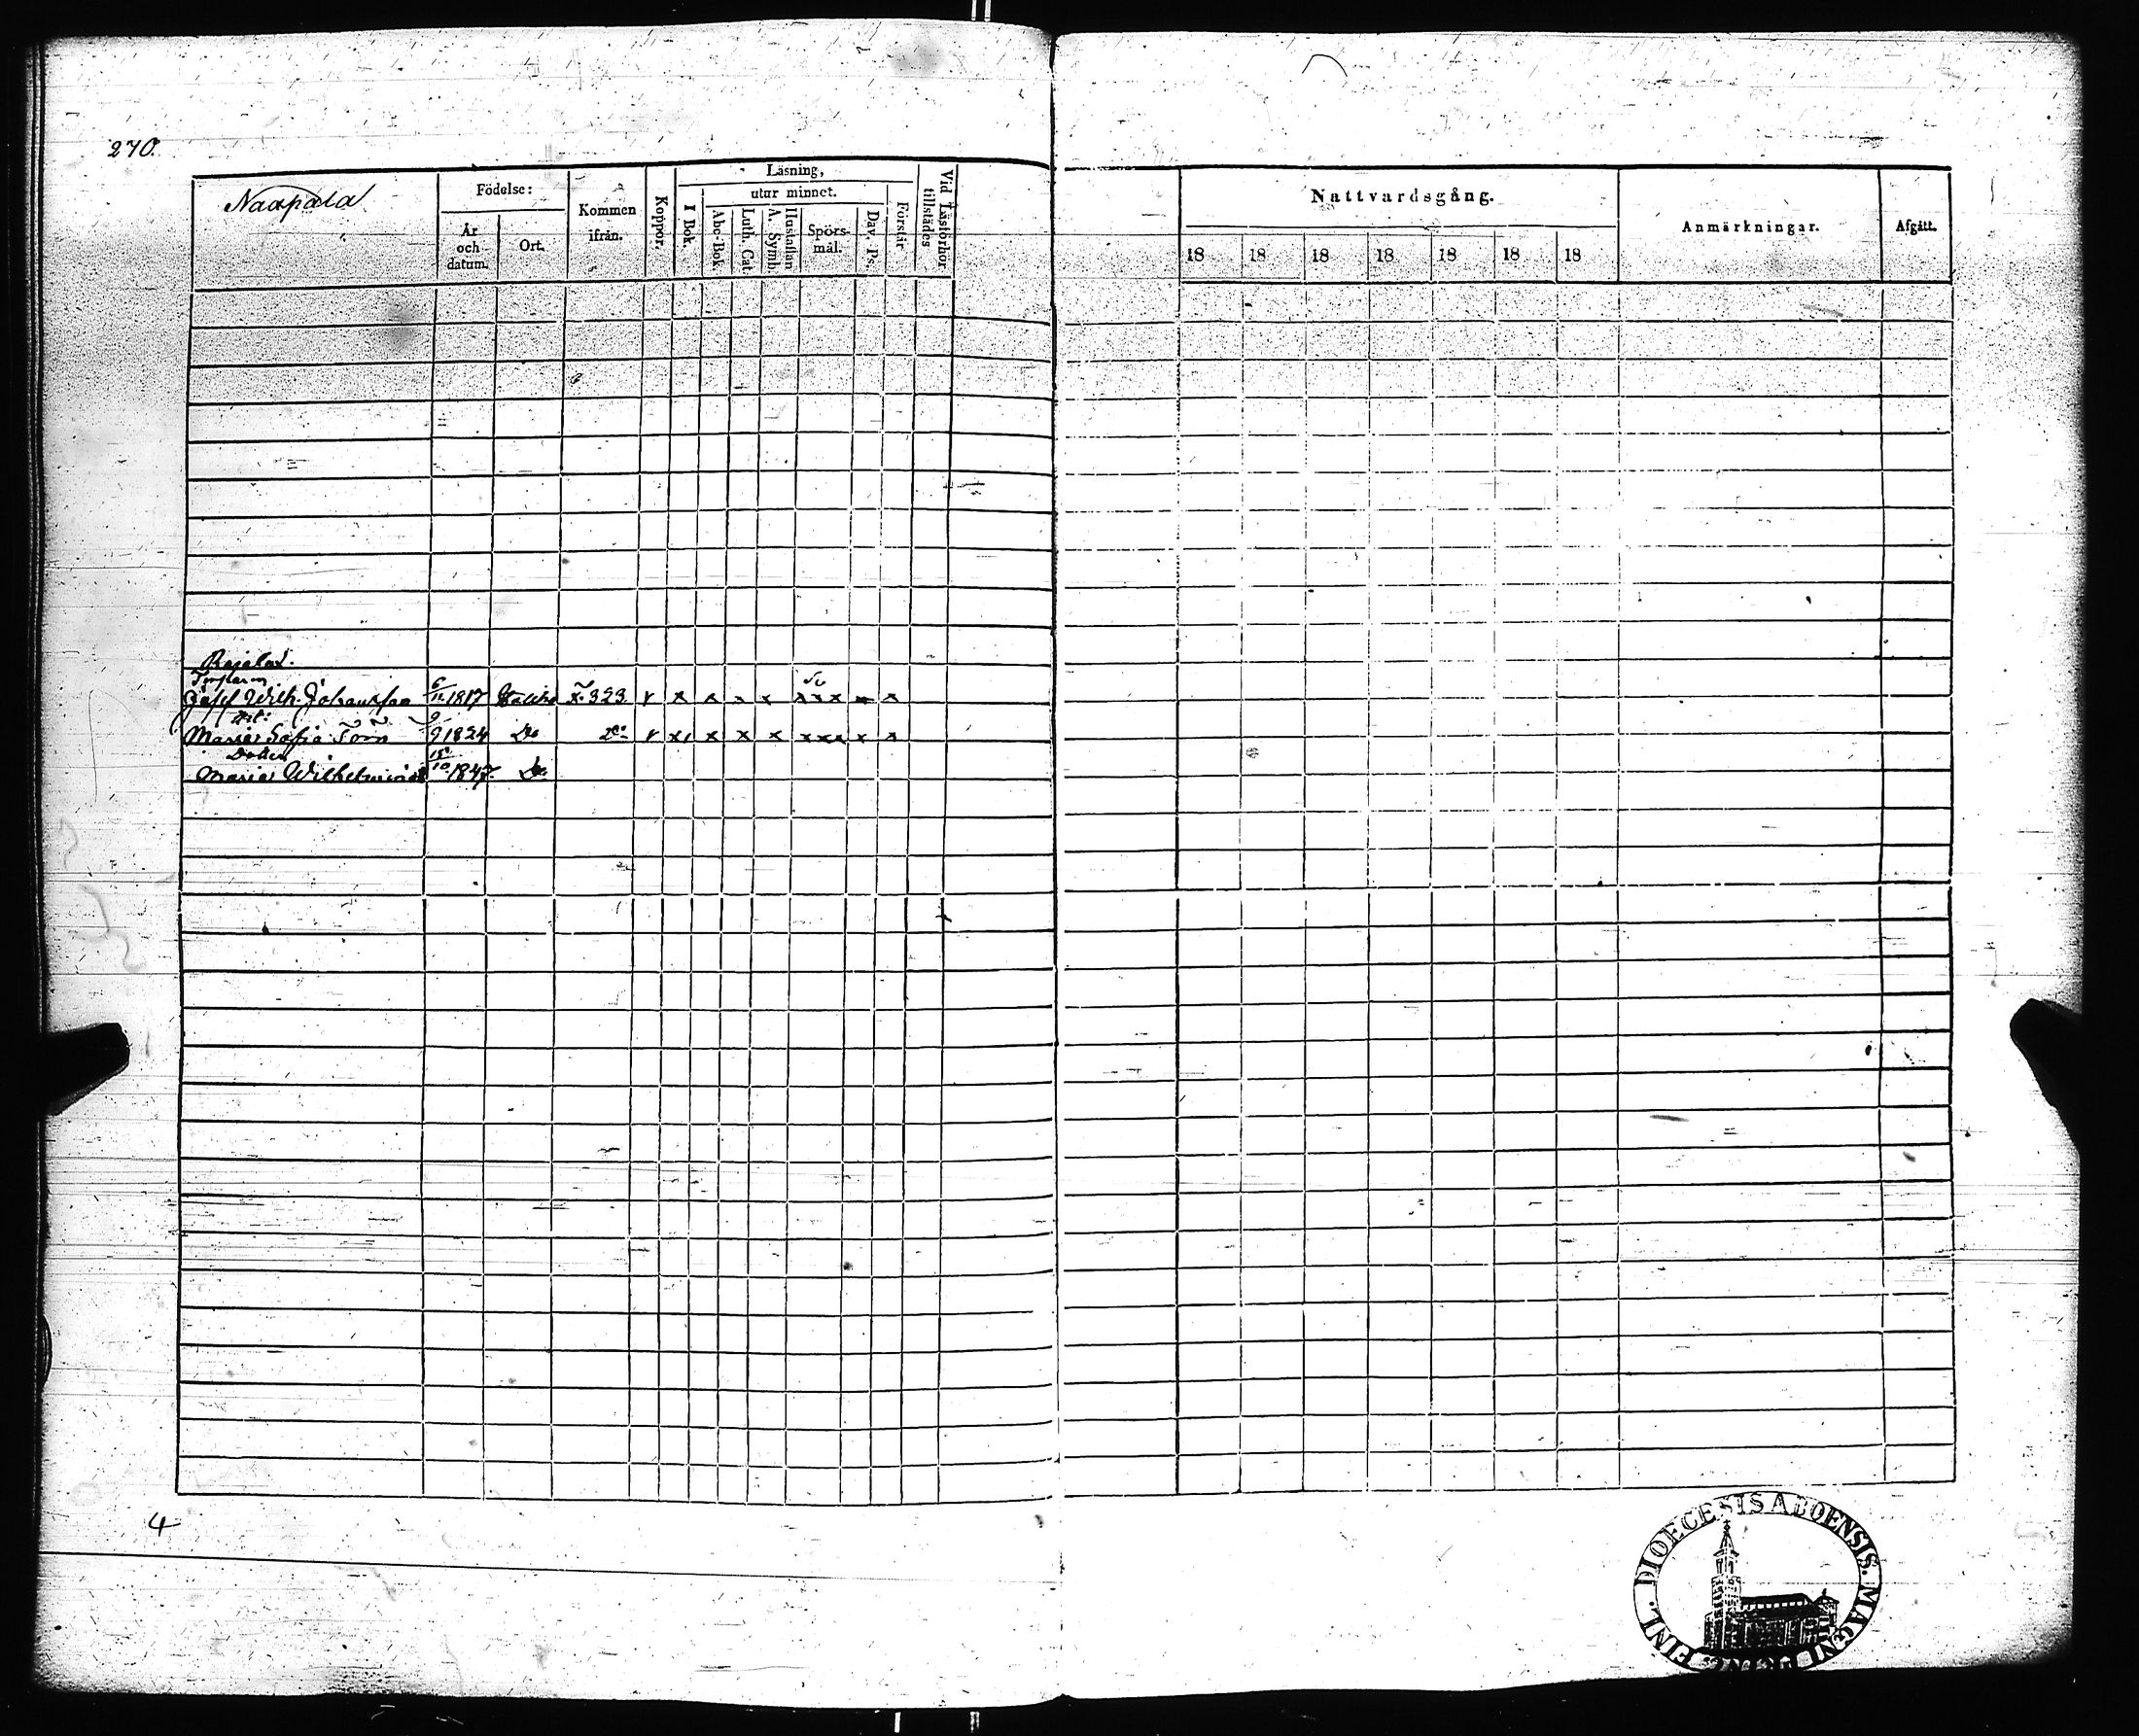 270.
Naapala
Födelse:
År och datum.
Ort.
Kommen ifrån.
Koppor.
Läsning,
I Bok.
utur minnet.
Abc-Bok
Luth. Cat.
A. Symb.
Hustaflan
Spörsmål.
Dav. Ps.
Förstår
Vid Läsförhör tillstädes
Nattvardsgång.
18 18 18 18 18 18 18
Anmärkningar.
Afgått.
Rajala.
Josef Wilh. Johansson 6/12 1817 323 v x x x x x x x x x
Maria Sofia 9/9 1824 Do Do v x x x x x x x x x
Dotter
Maria Wilhelmina 15/10 1847. Do
4
DIOECESIS ABOENSIS. MAGNI PRINC. FINL.